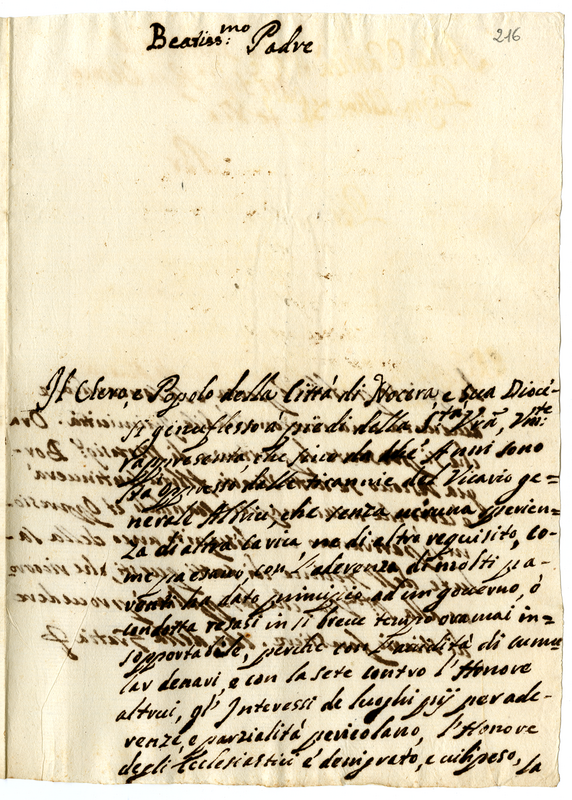 216
Beatiss:mo Padre
Il Clero, e Popolo della Città di Nocera e sua Dioce=
si genuflesso a' piedi della Stà Vrã, Vm:te
rappresenta che sono da due Anni sono
sta oppressa dalle tirannie del Vicario ge=
nerale che senza veruna sperien=
za di altra carica ne di altro requisito, co=
me pa esame, con l'aderenza di molti pa=
renti ha dato principio ad un governo, o
condotta resasi in sì breve tempo oramai in=
sopportabile, perche con l'avidità di cumu
lar denari, e con la sete contro l'Honore
altrui, gl'Interessi de luoghi pij per ade=
renze, e parzialità pericolano, l'Honore
degli Ecclesiastici è denigrato, e vilipeso, la